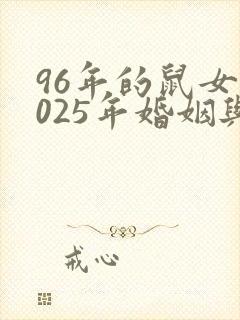 96年的鼠女
025年婚姻與
戒心